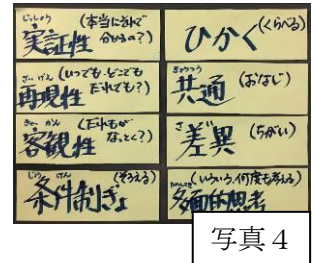 じっしょう
実証性 (本当にそれで
分かるの?)
さいげん
再現性 (いつでも・どこでも
だれでも?)
きゃっかん
客観性 (だれもが
なっとく?)
じょうけん
条件制ぎょ (そろえる)
ひかく (くらべる)
きょうつう
共通 (おなじ)
さい
差異 (ちがい)
(いろいろ、何度も考える)
多面的思考
写真4